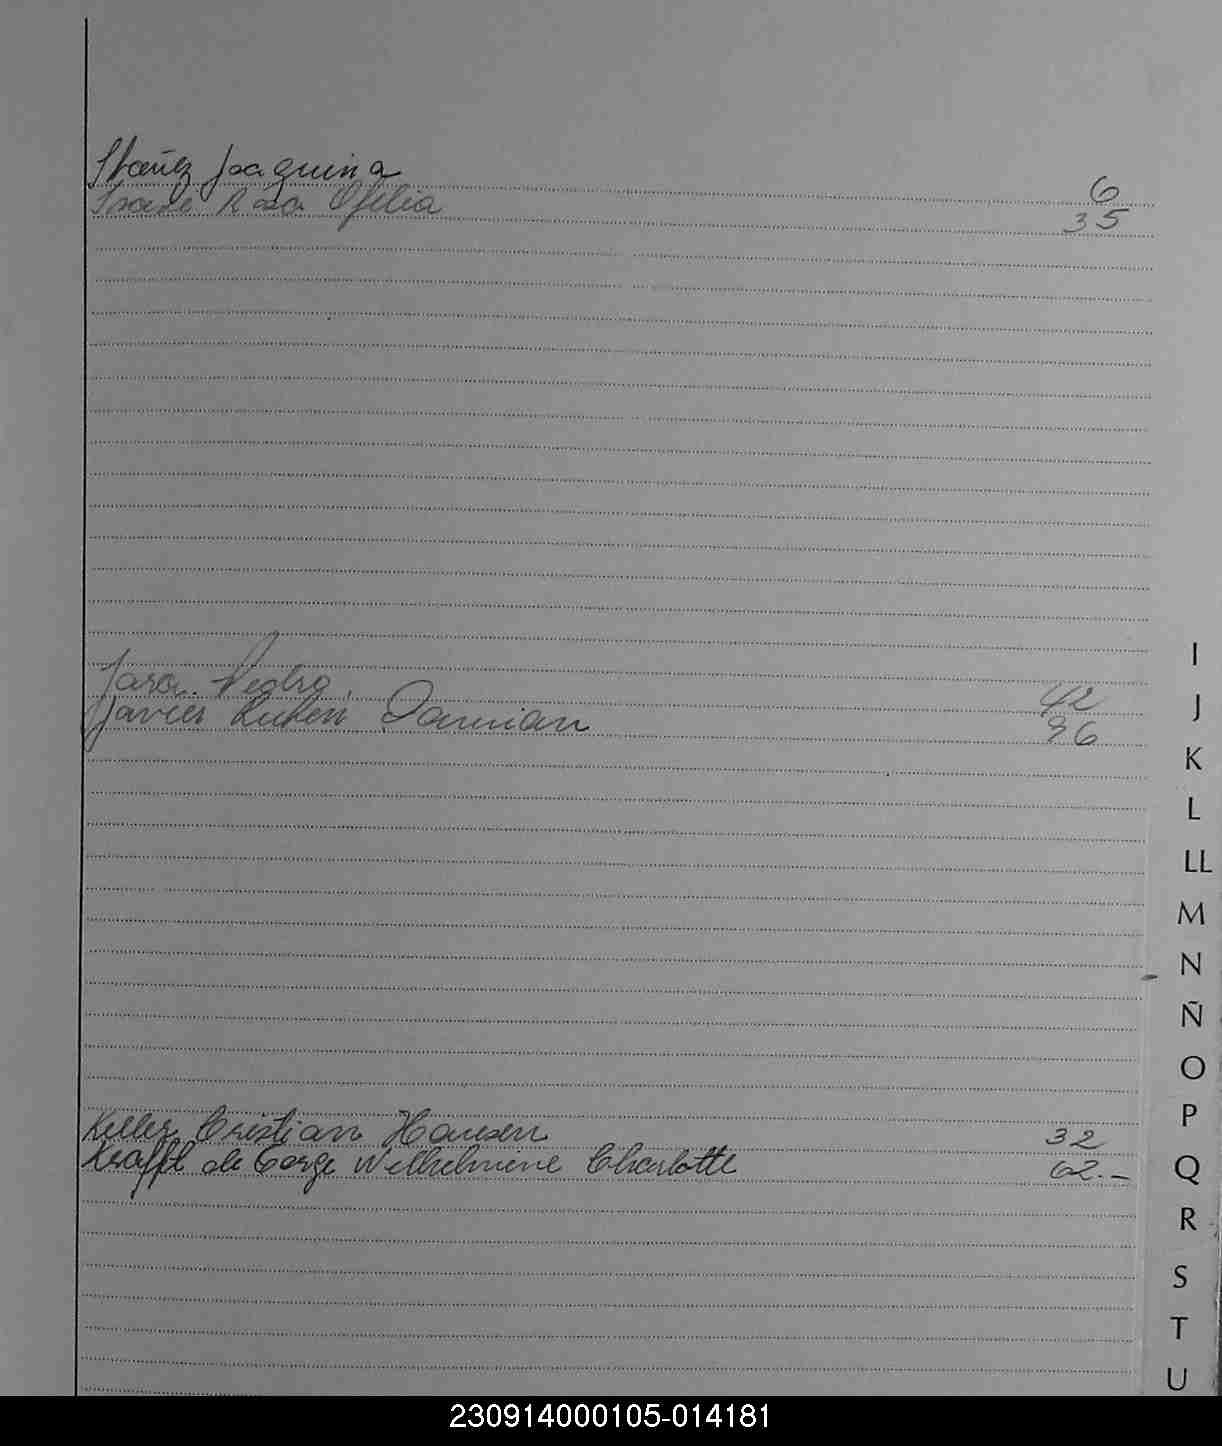 Ibañez Joaquina 6
Rosa Ofelia 35
Jara Pedro. 42
Javier Ruben Damian 36
Keller Cristian Hansen 32
Krafft de Gorge Wilhelmine Charlotte 62.-
I
J
K
L
LL
M
N
Ñ
O
P
Q
R
S
T
U
230914000105-014181